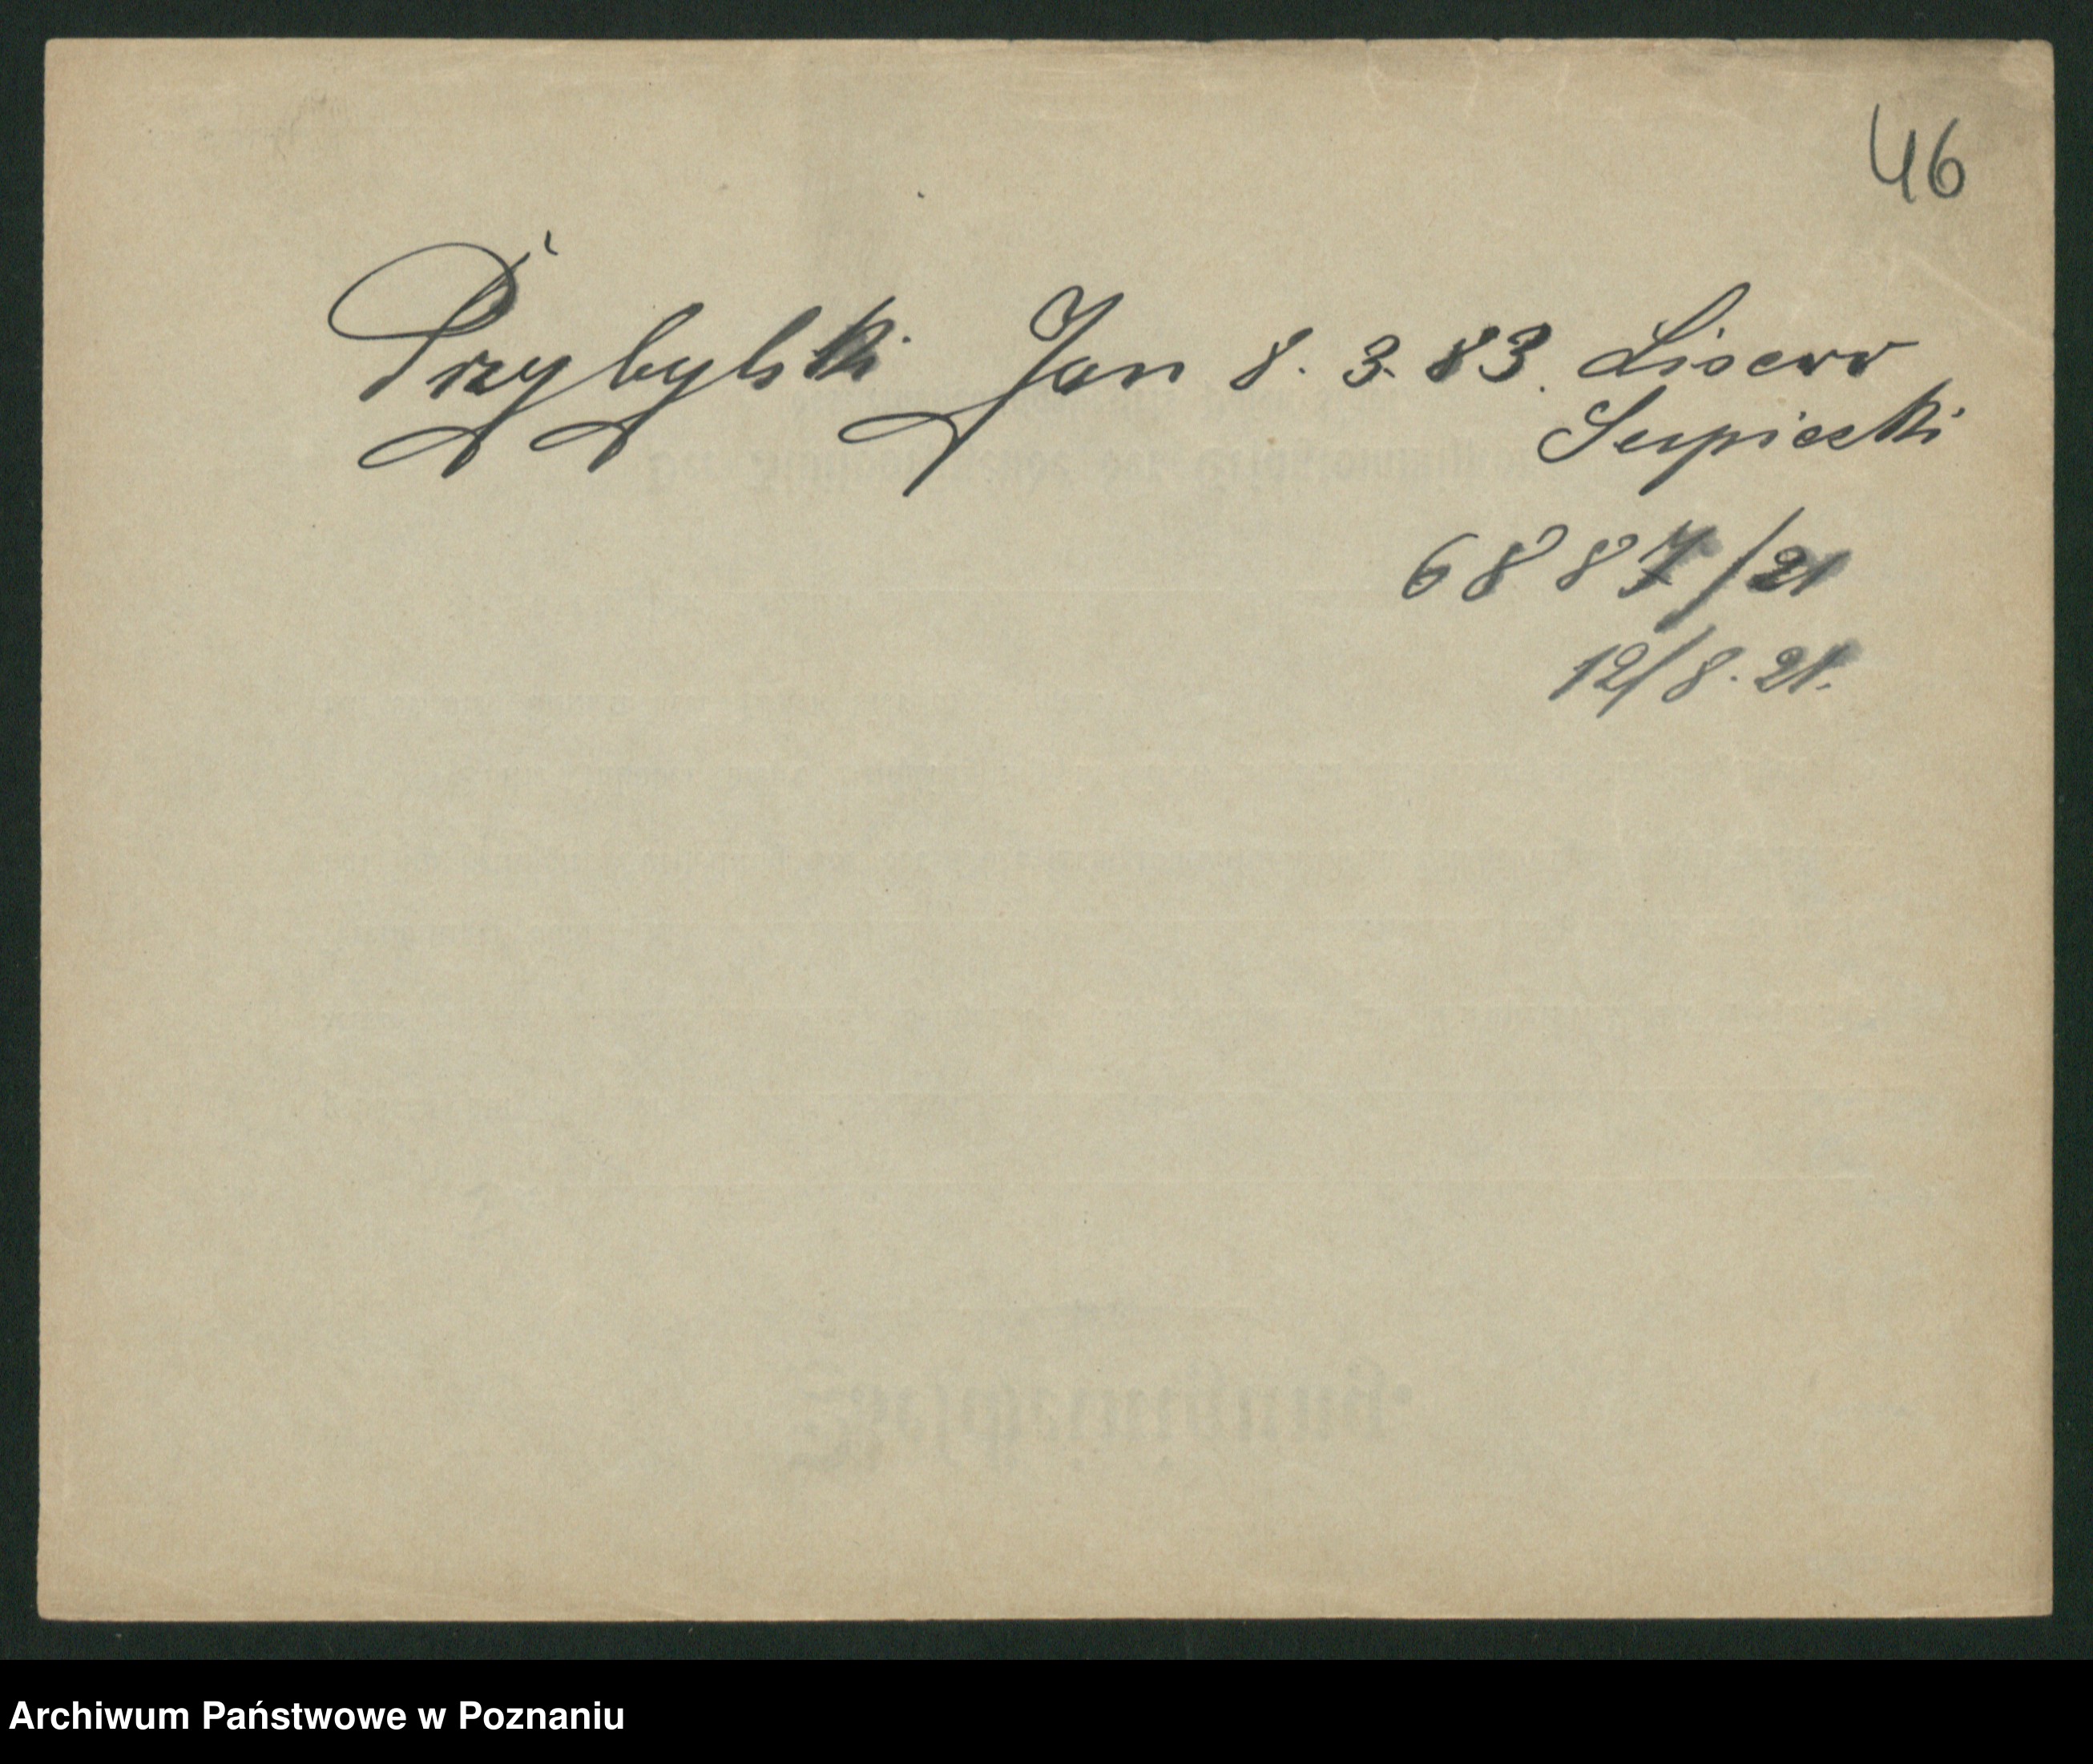 46
Przybylski Jan 8. 3. 83. Lisewo
Słupiecki
6887/21
12/8. 21.
Archiwum Państwowe w Poznaniu